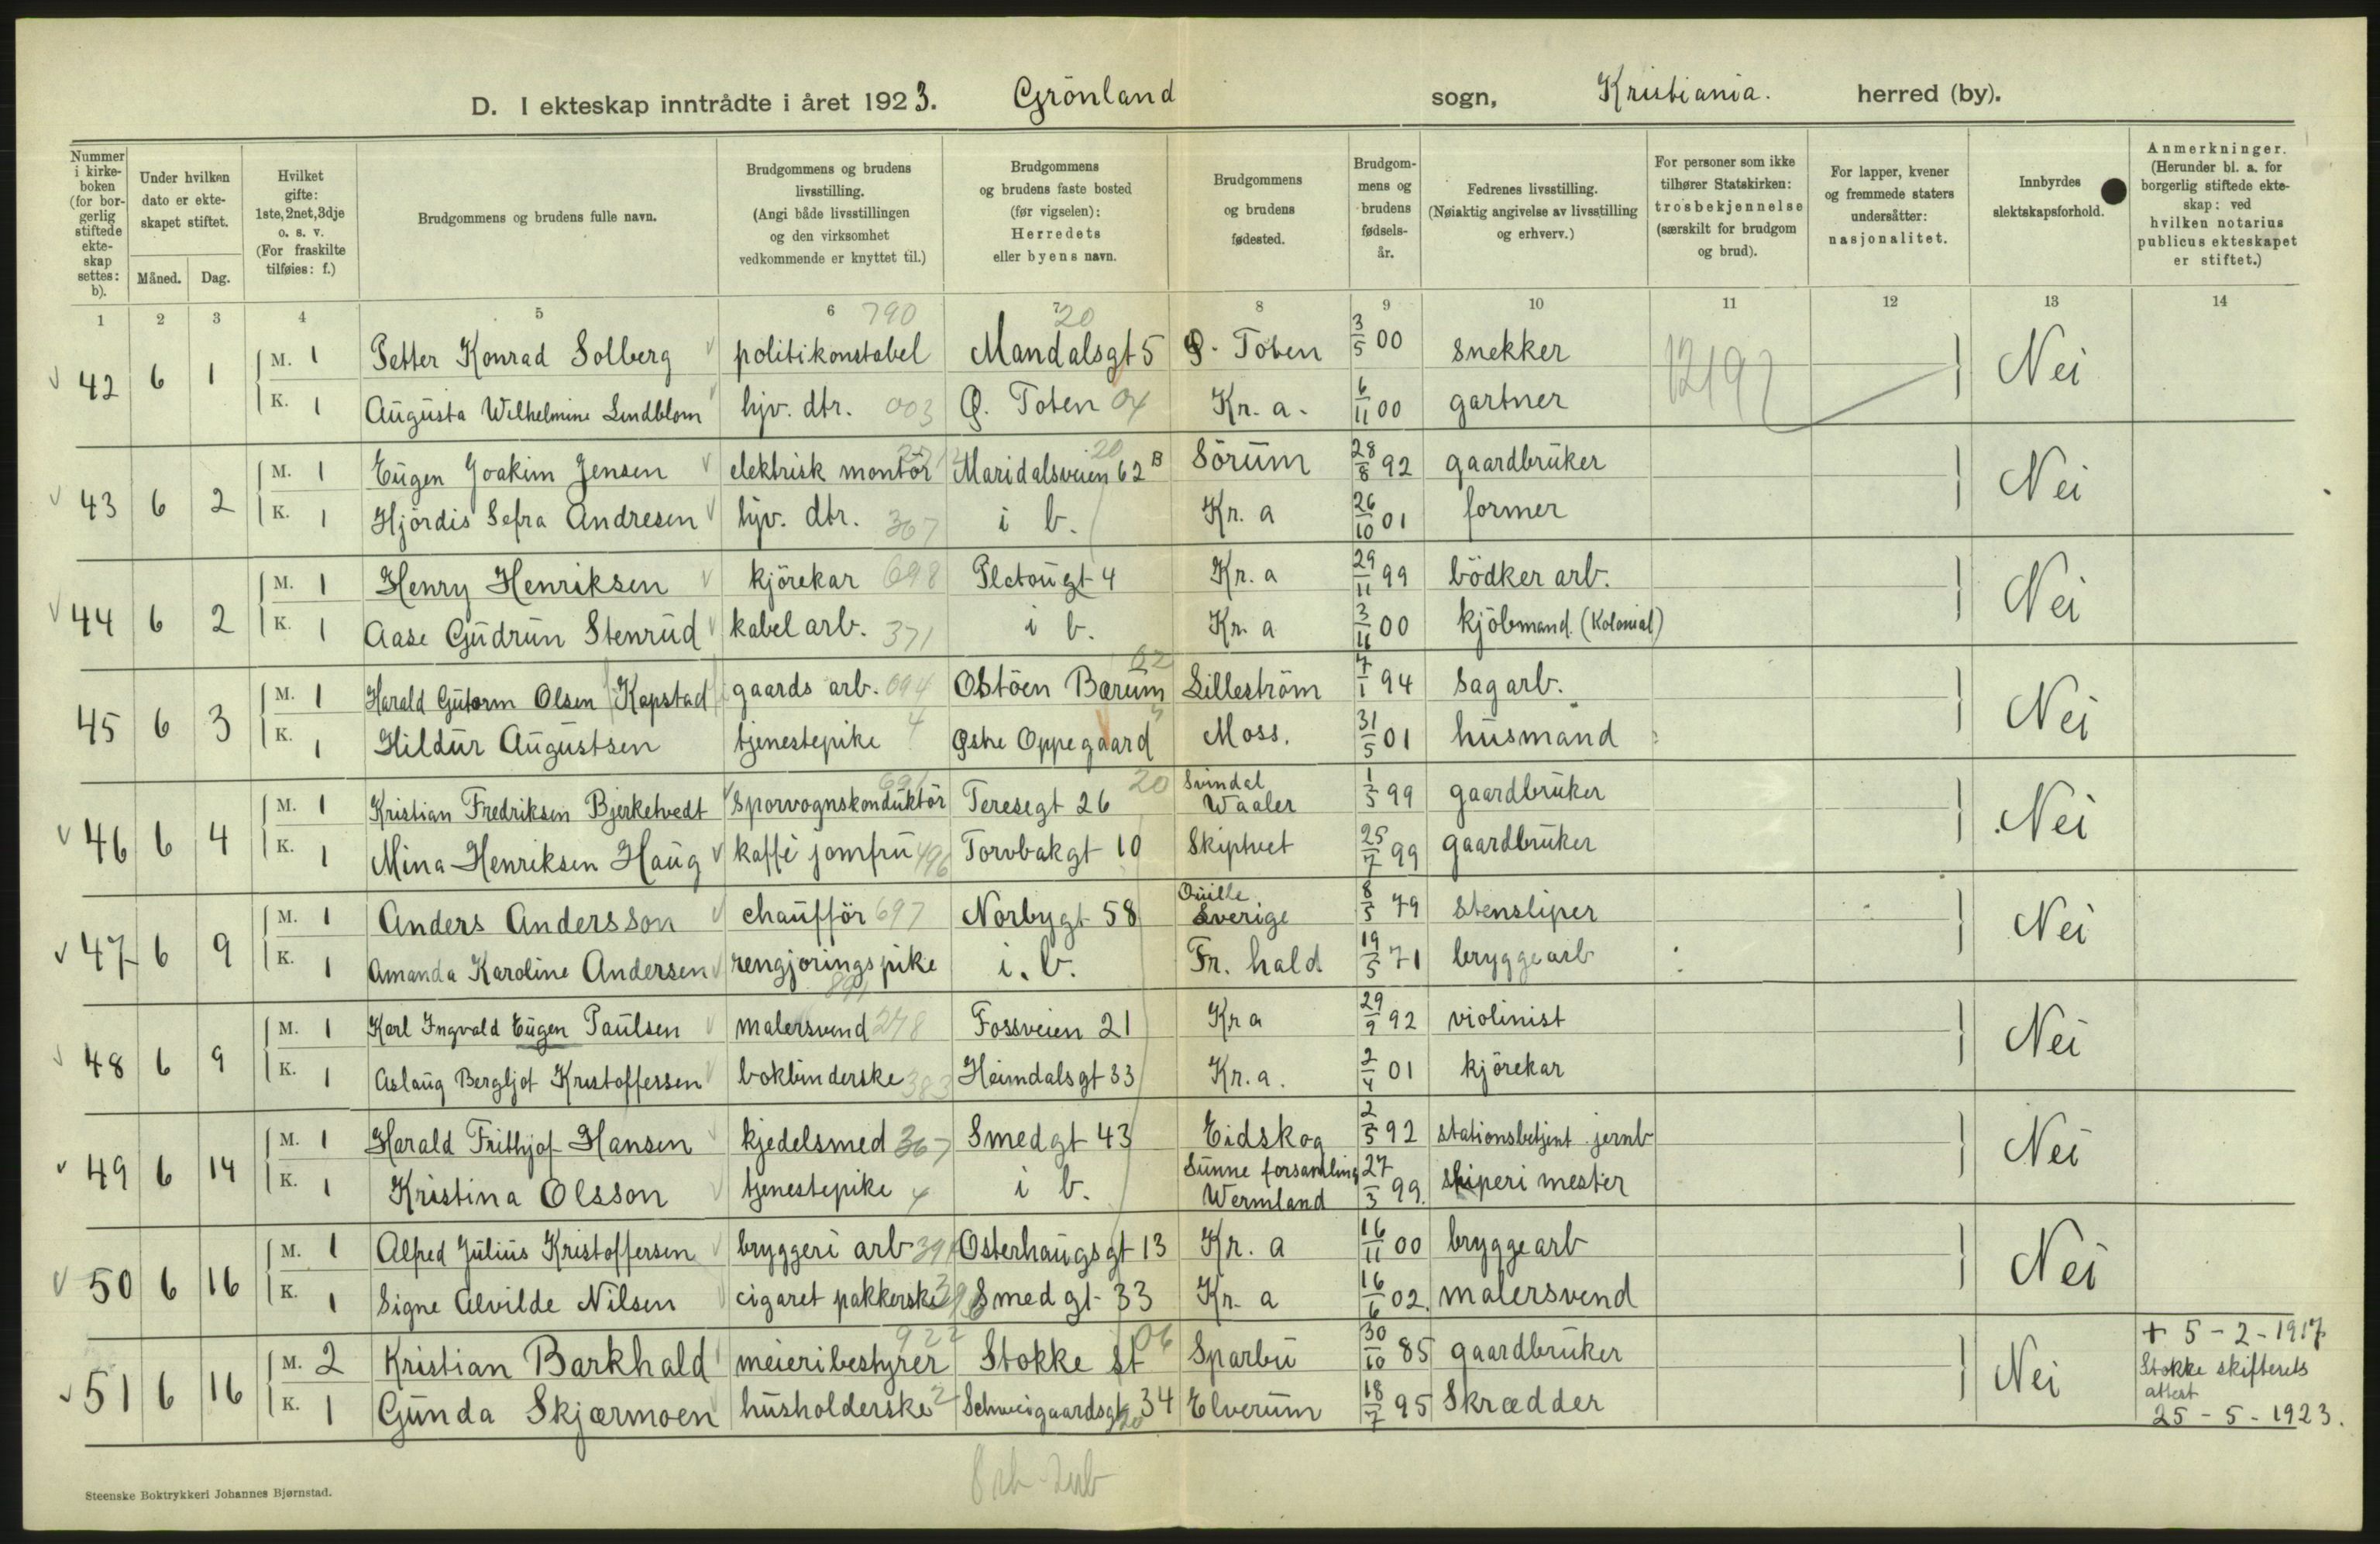 D. I ekteskap inntrådte i året 1923. Grönland sogn, Kristiania. herred (by).
Nummer i kirkeboken (for borgerlig stiftede ekteskap settes: b).
Under hvilken dato er ekteskapet stiftet.
Måned. Dag.
Hvilket gifte: 1ste, 2net, 3dje o. s. v. (For fraskilte tilføies: f.)
Brudgommens og brudens fulle navn.
Brudgommens og brudens livsstilling. (Angi både livsstillingen og den virksomhet vedkommende er knyttet til.)
Brudgommens og brudens faste bosted (før vigselen): Herredets eller byens navn.
Brudgommens og brudens fødested.
Brudgommens og brudens fødsels-år.
Fedrenes livsstilling. (Nøiaktig angivelse av livsstilling og erhverv.)
For personer som ikke tilhører Statskirken: trosbekjennelse (særskilt for brudgom og brud).
For lapper, kvener og fremmede staters undersåtter: nasjonalitet.
Innbyrdes slektskapsforhold.
Anmerkninger. (Herunder bl. a. for borgerlig stiftede ekteskap: ved hvilken notarius publicus ekteskapet er stiftet.)
1 2 3 4 5 6 7 8 9 10 11 12 13 14
790 20
42 6 1 M. 1 Petter Konrad Solberg politikonstabel Mandalsgt 5 Ø. Toten 3/5 00 snekker 12197 Nei
K. 1 Augusta Wilhelmine Lindblom hjv. dtr. 003 Ø. Toten 04 Kr. a. 6/11 00 gartner
43 6 2 M. 1 Eugen Joakim Jensen elektrisk montör Maridalsveien 62 B 20 Sörum 28/8 92 gaardbruker Nei
K. 1 Hjördis Sefra Andresen hjv. dtr. 367 i b. Kr. a 26/10 01 former
44 6 2 M. 1 Henry Henriksen kjörekar 698 Platougt 4 Kr. a 29/11 99 bödker arb. Nei
K. 1 Aase Gudrun Stenrud kabel arb. 371 i b. Kr. a 3/11 00 kjöbmand. (Kolonial)
45 6 3 M. 1 Harald Gutorm Olsen Kapstad gaards arb. 094 Ostöen Bærum 02 Lilleström 7/1 94 sag arb. Nei
K. 1 Hildur Augustsen tjenestepike 4 Østre Oppegaard Moss. 31/5 01 husmand
46 6 4 M. 1 Kristian Fredriksen Bjerketvedt sporvognskonduktör 691 Teresegt 26 20 Svindal Waaler 1/5 99 gaardbruker Nei
K. 1 Mina Henriksen Haug kaffé jomfru 496 Torvbakgt 10 Skiptvet 25/7 99 gaardbruker
47 6 9 M. 1 Anders Andersson chaufför 697 Norbygt 58 Quille Sverige 8/5 79 stensliper Nei
K. 1 Amanda Karoline Andersen rengjöringspike 891 i. b. Fr. hald 19/5 71 bryggearb
48 6 9 M. 1 Karl Ingvald Eugen Paulsen malersvend 248 Fossveien 21 Kr a 29/9 92 violinist Nei
K. 1 Aslaug Bergljot Kristoffersen bokbinderske 383 Heimdalsgt 33 Kr. a. 2/4 01 kjörekar
49 6 14 M. 1 Harald Frithjof Hansen kjedelsmed 367 Smedgt 43 Eidskog 2/5 92 stationsbetjent jernb Nei
K. 1 Kristina Olsson tjenestepike 4 i b. Sunne forsamling Wermland 27/3 99. sliperi mester
50 6 16 M. 1 Alfred Julius Kristoffersen bryggeri arb 391 Osterhaugsgt 13 Kr. a 16/11 00 bryggearb Nei
K. 1 Signe Alvilde Nilsen cigaret pakkerske Smedgt 33 Kr. a 16/6 02. malersvend
51 6 16 M. 2 Kristian Barkhald meieribestyrer 922 Stokke st 06 Sparbu 30/10 85 gaardbruker Nei + 5-2-1917 Stokke skifterets attest 25-5-1923.
K. 1 Gunda Skjærmoen husholderske 2 Schweigaardsgt 34 20 Elverum 18/7 95 Skrædder
Steenske Boktrykkeri Johannes Bjørnstad.